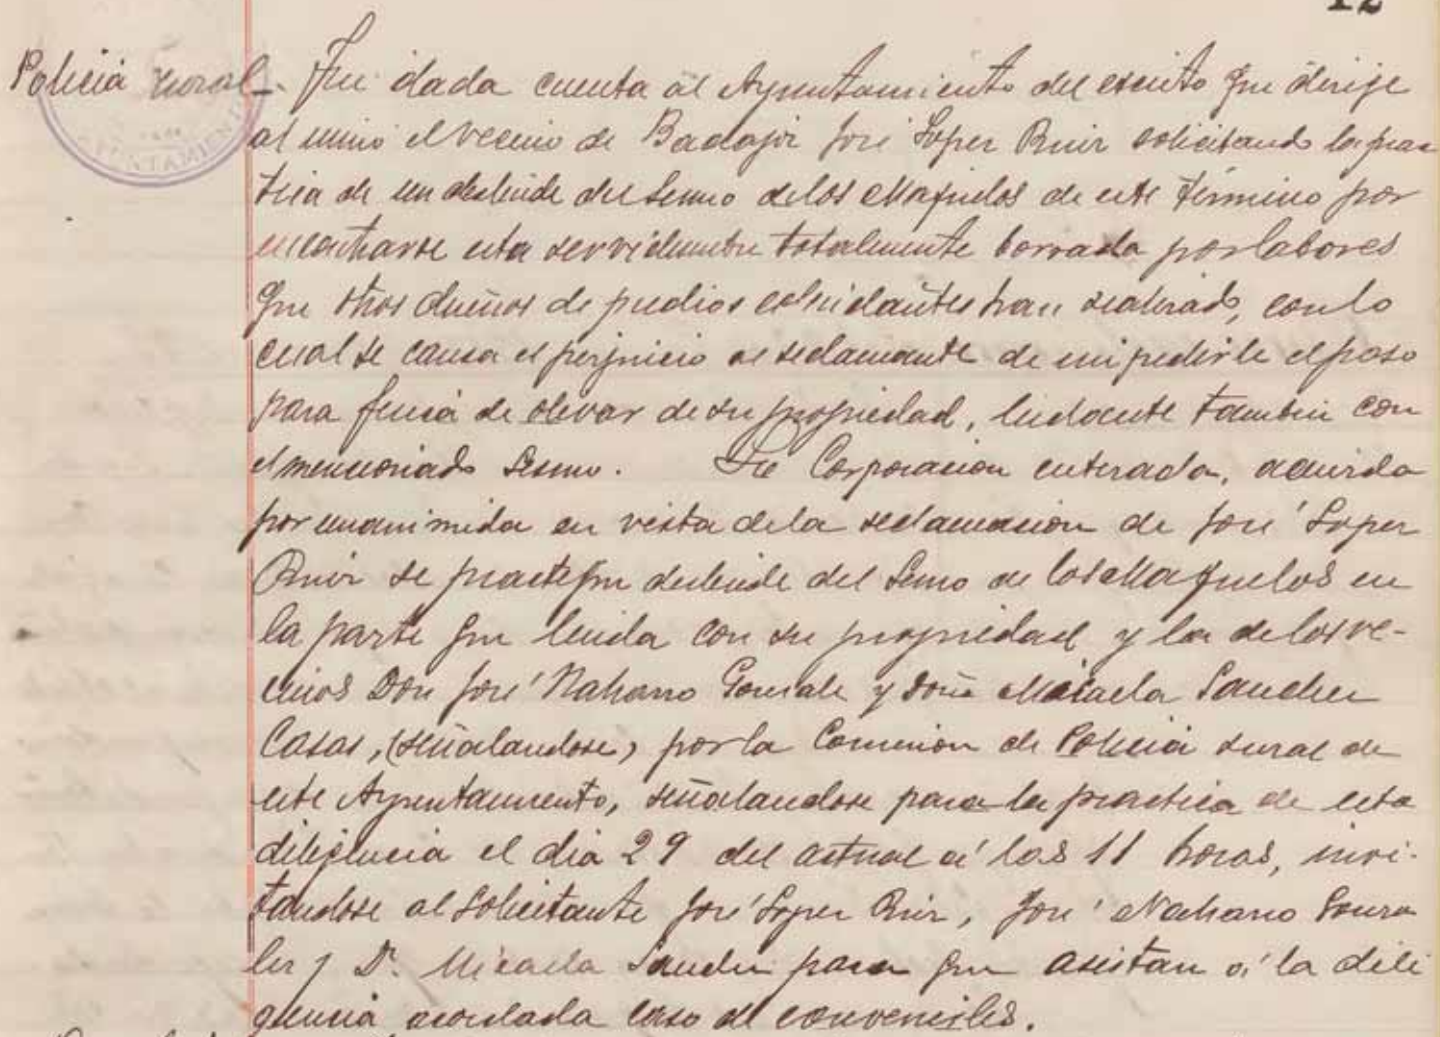 12
Policia rural_. Fue dada cuenta al Ayuntamiento del escrito que dirije
al mismo el vecino de Badajoz José Lopez Ruiz solicitando la prac
tica de un deslinde del Sesmo de los Majuelos de este término por
encontrarse esta servidumbre totalmente borrada por labores
que otros dueños de predios colindantes han realizado, con lo
cual se causa el perjuicio al reclamante de impedirle el paso
para finca de olivar de su propiedad, lindante tambien con
el mencionado Sesmo. La Corporacion enterada, acuerda
por unanimida en vista de la reclamacion de José Lopez
Ruiz se practique deslinde del Sesmo de los Majuelos en
la parte que linda con su propiedad y la de los ve-
cinos Don José Naharro Gonzale y doña Micaela Sanchez
Casas, (señalandose) por la Comision de Policia rural de
este Ayuntamiento, señalandose para la practica de esta
diligencia el dia 29 del actual á las 11 horas, invi-
tandose al solicitante José Lopez Ruiz, José Naharro Gonza
lez y Dª. Micaela Sanchez para que asistan á la dili
gencia acordada caso de convenirles.
AYUNTAMIENTO